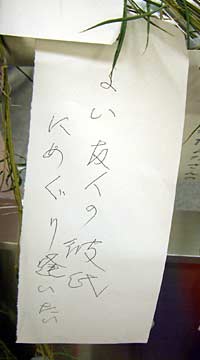 よい友人の彼氏
にめぐり逢いたい